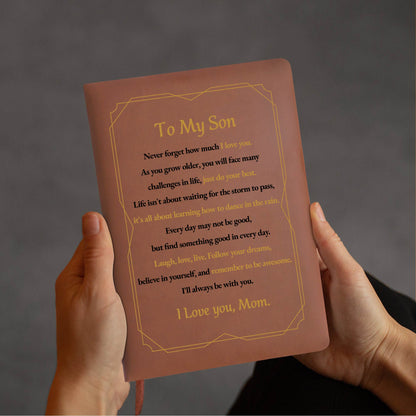 To My Son
Never forget how much I love you.
As you grow older, you will face many
challenges in life, just do your best.
Life isn't about waiting for the storm to pass,
it's all about learning how to dance in the rain.
Every day may not be good,
but find something good in every day.
Laugh, love, live. Follow your dreams,
believe in yourself, and remember to be awesome.
I'll always be with you.
I Love you, Mom.